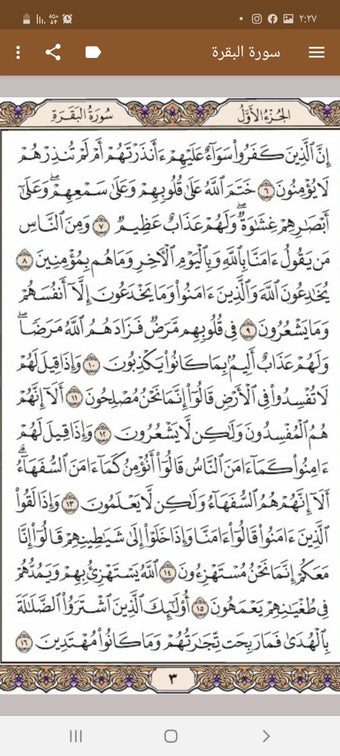 ٢:٢٧
سورة البقرة
الجُزْءُ الأَوَّلُ
سُورَةُ البَقَرَةِ
إِنَّ ٱلَّذِينَ كَفَرُوا۟ سَوَآءٌ عَلَيْهِمْ ءَأَنذَرْتَهُمْ أَمْ لَمْ تُنذِرْهُمْ
لَا يُؤْمِنُونَ ٦ خَتَمَ ٱللَّهُ عَلَىٰ قُلُوبِهِمْ وَعَلَىٰ سَمْعِهِمْ ۖ وَعَلَىٰٓ
أَبْصَـٰرِهِمْ غِشَـٰوَةٌ ۖ وَلَهُمْ عَذَابٌ عَظِيمٌ ٧ وَمِنَ ٱلنَّاسِ
مَن يَقُولُ ءَامَنَّا بِٱللَّهِ وَبِٱلْيَوْمِ ٱلْـَٔاخِرِ وَمَا هُم بِمُؤْمِنِينَ ٨
يُخَـٰدِعُونَ ٱللَّهَ وَٱلَّذِينَ ءَامَنُوا۟ وَمَا يَخْدَعُونَ إِلَّآ أَنفُسَهُمْ
وَمَا يَشْعُرُونَ ٩ فِى قُلُوبِهِم مَّرَضٌ فَزَادَهُمُ ٱللَّهُ مَرَضًا ۖ
وَلَهُمْ عَذَابٌ أَلِيمٌۢ بِمَا كَانُوا۟ يَكْذِبُونَ ١٠ وَإِذَا قِيلَ لَهُمْ
لَا تُفْسِدُوا۟ فِى ٱلْأَرْضِ قَالُوٓا۟ إِنَّمَا نَحْنُ مُصْلِحُونَ ١١ أَلَآ إِنَّهُمْ
هُمُ ٱلْمُفْسِدُونَ وَلَـٰكِن لَّا يَشْعُرُونَ ١٢ وَإِذَا قِيلَ لَهُمْ
ءَامِنُوا۟ كَمَآ ءَامَنَ ٱلنَّاسُ قَالُوٓا۟ أَنُؤْمِنُ كَمَآ ءَامَنَ ٱلسُّفَهَآءُ ۗ
أَلَآ إِنَّهُمْ هُمُ ٱلسُّفَهَآءُ وَلَـٰكِن لَّا يَعْلَمُونَ ١٣ وَإِذَا لَقُوا۟
ٱلَّذِينَ ءَامَنُوا۟ قَالُوٓا۟ ءَامَنَّا وَإِذَا خَلَوْا۟ إِلَىٰ شَيَـٰطِينِهِمْ قَالُوٓا۟ إِنَّا
مَعَكُمْ إِنَّمَا نَحْنُ مُسْتَهْزِءُونَ ١٤ ٱللَّهُ يَسْتَهْزِئُ بِهِمْ وَيَمُدُّهُمْ
فِى طُغْيَـٰنِهِمْ يَعْمَهُونَ ١٥ أُو۟لَـٰٓئِكَ ٱلَّذِينَ ٱشْتَرَوُا۟ ٱلضَّلَـٰلَةَ
بِٱلْهُدَىٰ فَمَا رَبِحَت تِّجَـٰرَتُهُمْ وَمَا كَانُوا۟ مُهْتَدِينَ ١٦
٣